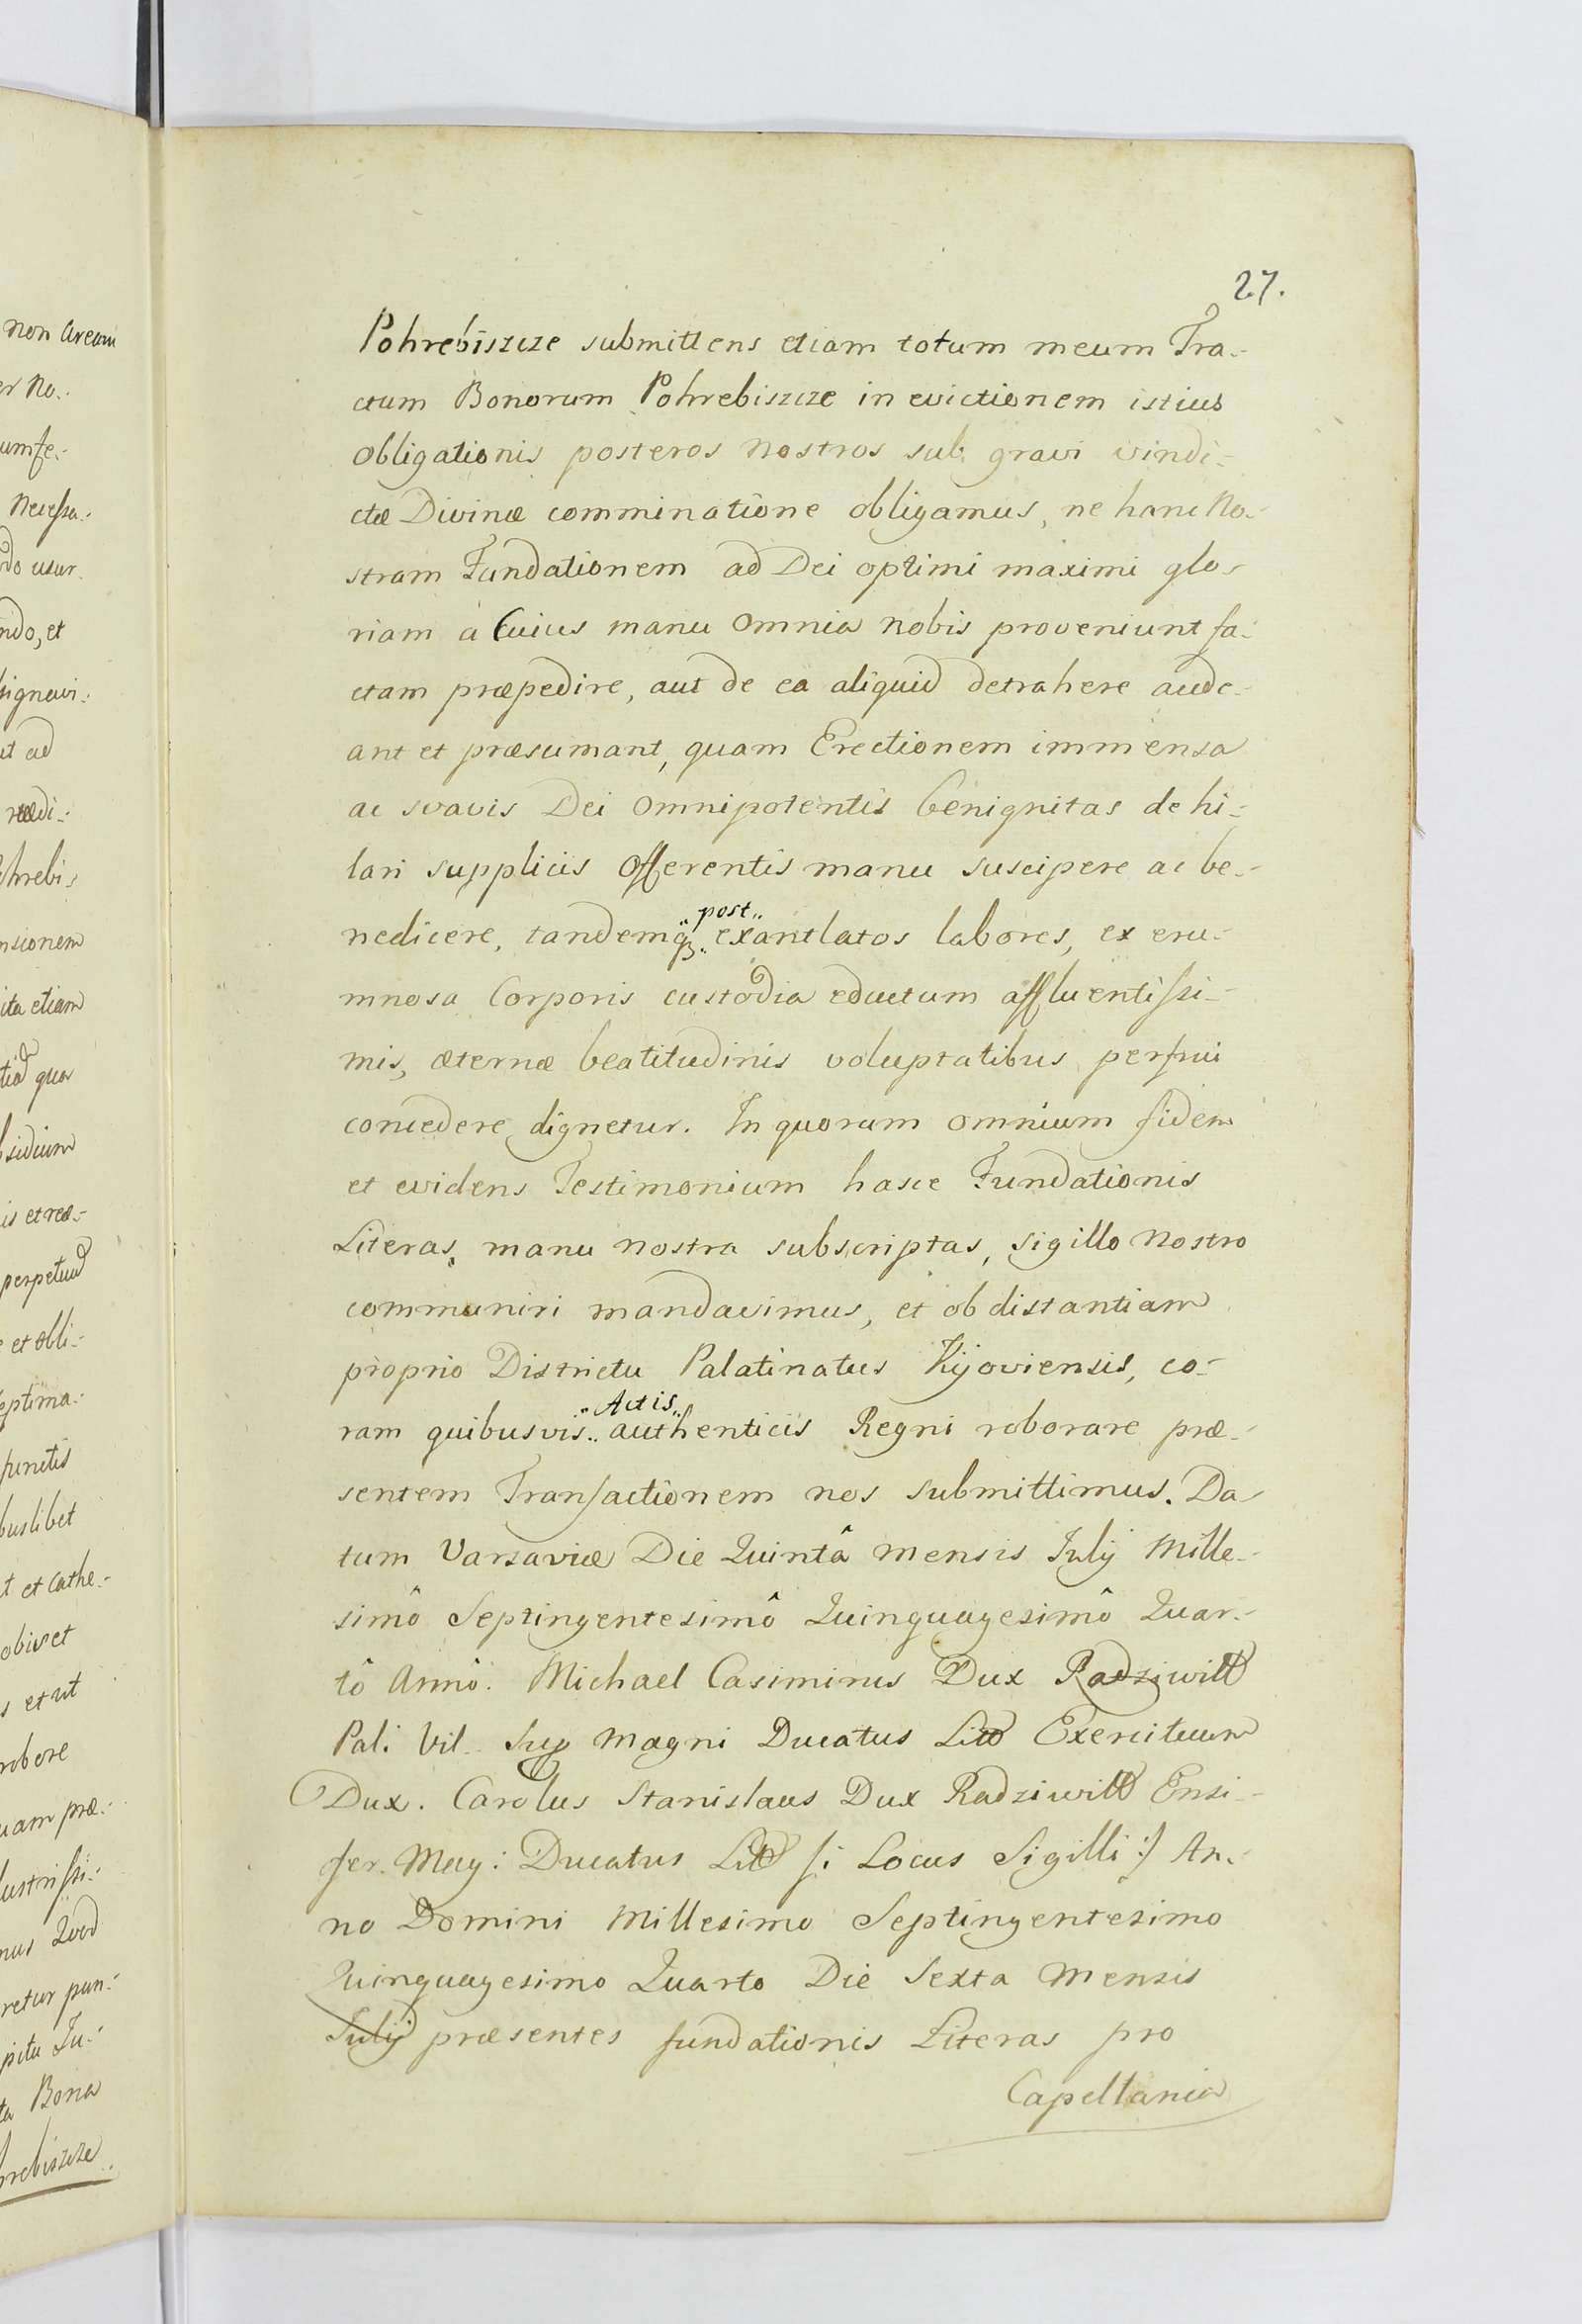 27.
Pohrebiszcze submittens etiam totum meum Tra-
ctum Bonorum Pohrebiszcze in evictionem istius
obligationis posteros nostros sub gravi vindi-
ctæ Divinæ comminatione obligamus, ne hanc No-
stram Fundationem ad Dei optimi maximi glo-
riam a Cuius manu omnia nobis proveniunt fa-
ctam præpedire, aut de ea aliquid detrahere aude-
ant et præsumant, quam Erectionem immensa
ac svavis Dei omnipotentis benignitas de hi-
lari supplicis offerentis manu suscipere ac be-
nedicere, tandemq3 post exantlatos labores, ex eru-
mnosa Corporis custodia eductum affluentissi-
mis, æternæ beatitudinis voluptatibus perfrui
concedere dignetur. In quorum omnium fidem
et evidens Testimonium hasce Fundationis
Literas, manu nostra subscriptas, sigillo nostro
communiri mandavimus, et ob distantiam
proprio Districtu Palatinatus Kijoviensis, co-
ram quibusvis Actis authenticis Regni roborare præ-
sentem Transactionem nos submittimus. Da
tum Varsaviæ Die Quintâ mensis Julij Mille-
simô Septingentesimô Quinquagesimô Quar-
tô Annô. Michael Casimirus Dux Radziwiłł
Pal: Vil. Sup Magni Ducatus Litt Exercituum
Dux. Carolus Stanislaus Dux Radziwiłł Ensi-
fer. Mag: Ducatus Litt /: Locus Sigilli :/ An-
no Domini Millesimo Septingentesimo
Quinquagesimo Quarto Die Sexta Mensis
Julij præsentes fundationis Literas pro
Capellania